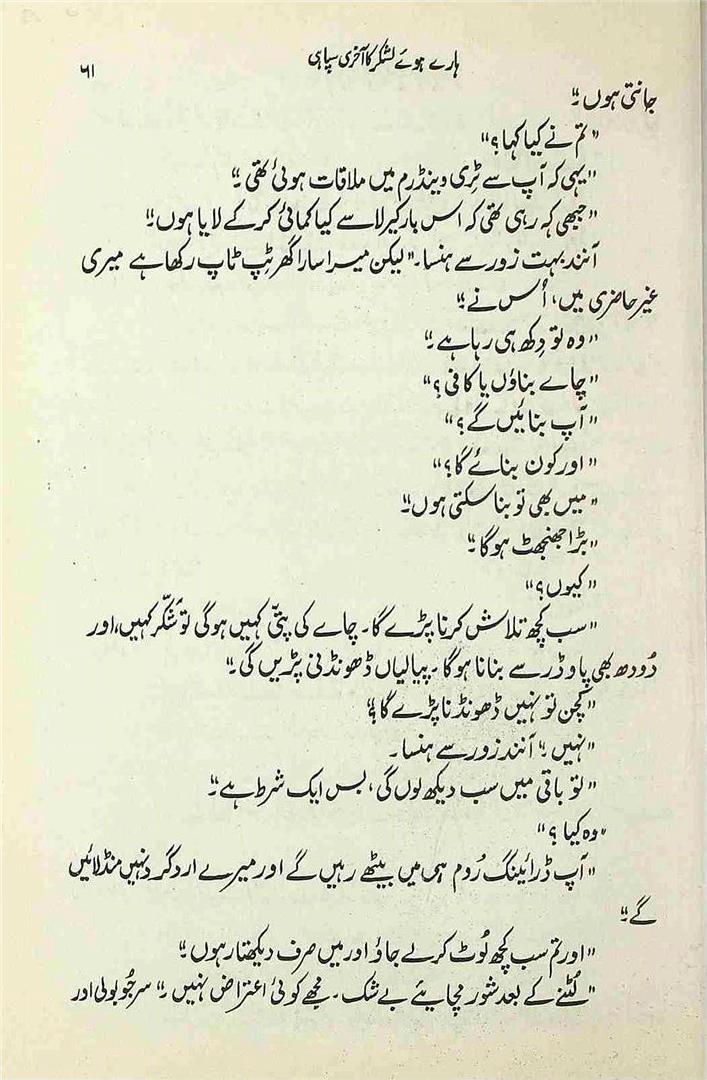 ہارے ہوئے لشکر کا آخری سپاہی
۶۱
جانتی ہوں۔"
"تم نے کیا کہا؟"
"یہی کہ آپ سے ٹری وینڈرم میں ملاقات ہوئی تھی۔"
"جبھی کہہ رہی تھی کہ اس بار کیرلا سے کیا کمائی کر کے لایا ہوں۔"
آنند بہت زور سے ہنسا۔ "لیکن میرا سارا گھر ٹِپ ٹاپ رکھا ہے میری
غیر حاضری میں، اُس نے۔"
"وہ تو دِکھ ہی رہا ہے۔"
"چاے بناؤں یا کافی؟"
"آپ بنائیں گے؟"
"اور کون بنائے گا؟"
"میں بھی تو بنا سکتی ہوں۔"
"بڑا جھنجھٹ ہوگا۔"
"کیوں؟"
"سب کچھ تلاش کرنا پڑے گا۔ چاے کی پتّی کہیں ہوگی تو شکّر کہیں، اور
دُودھ بھی پاوڈر سے بنانا ہوگا۔ پیالیاں ڈھونڈنی پڑیں گی۔"
"کچن تو نہیں ڈھونڈنا پڑے گا؟"
"نہیں۔" آنند زور سے ہنسا۔
"تو باقی میں سب دیکھ لوں گی، بس ایک شرط ہے۔"
"وہ کیا؟"
"آپ ڈرائینگ رُوم ہی میں بیٹھے رہیں گے اور میرے اردگرد نہیں منڈلائیں
گے۔"
"اور تم سب کچھ لُوٹ کر لے جاؤ اور میں صرف دیکھتا رہوں۔"
"لُٹنے کے بعد شور مچایئے بے شک۔ مجھے کوئی اعتراض نہیں۔" سرجُو بولی اور